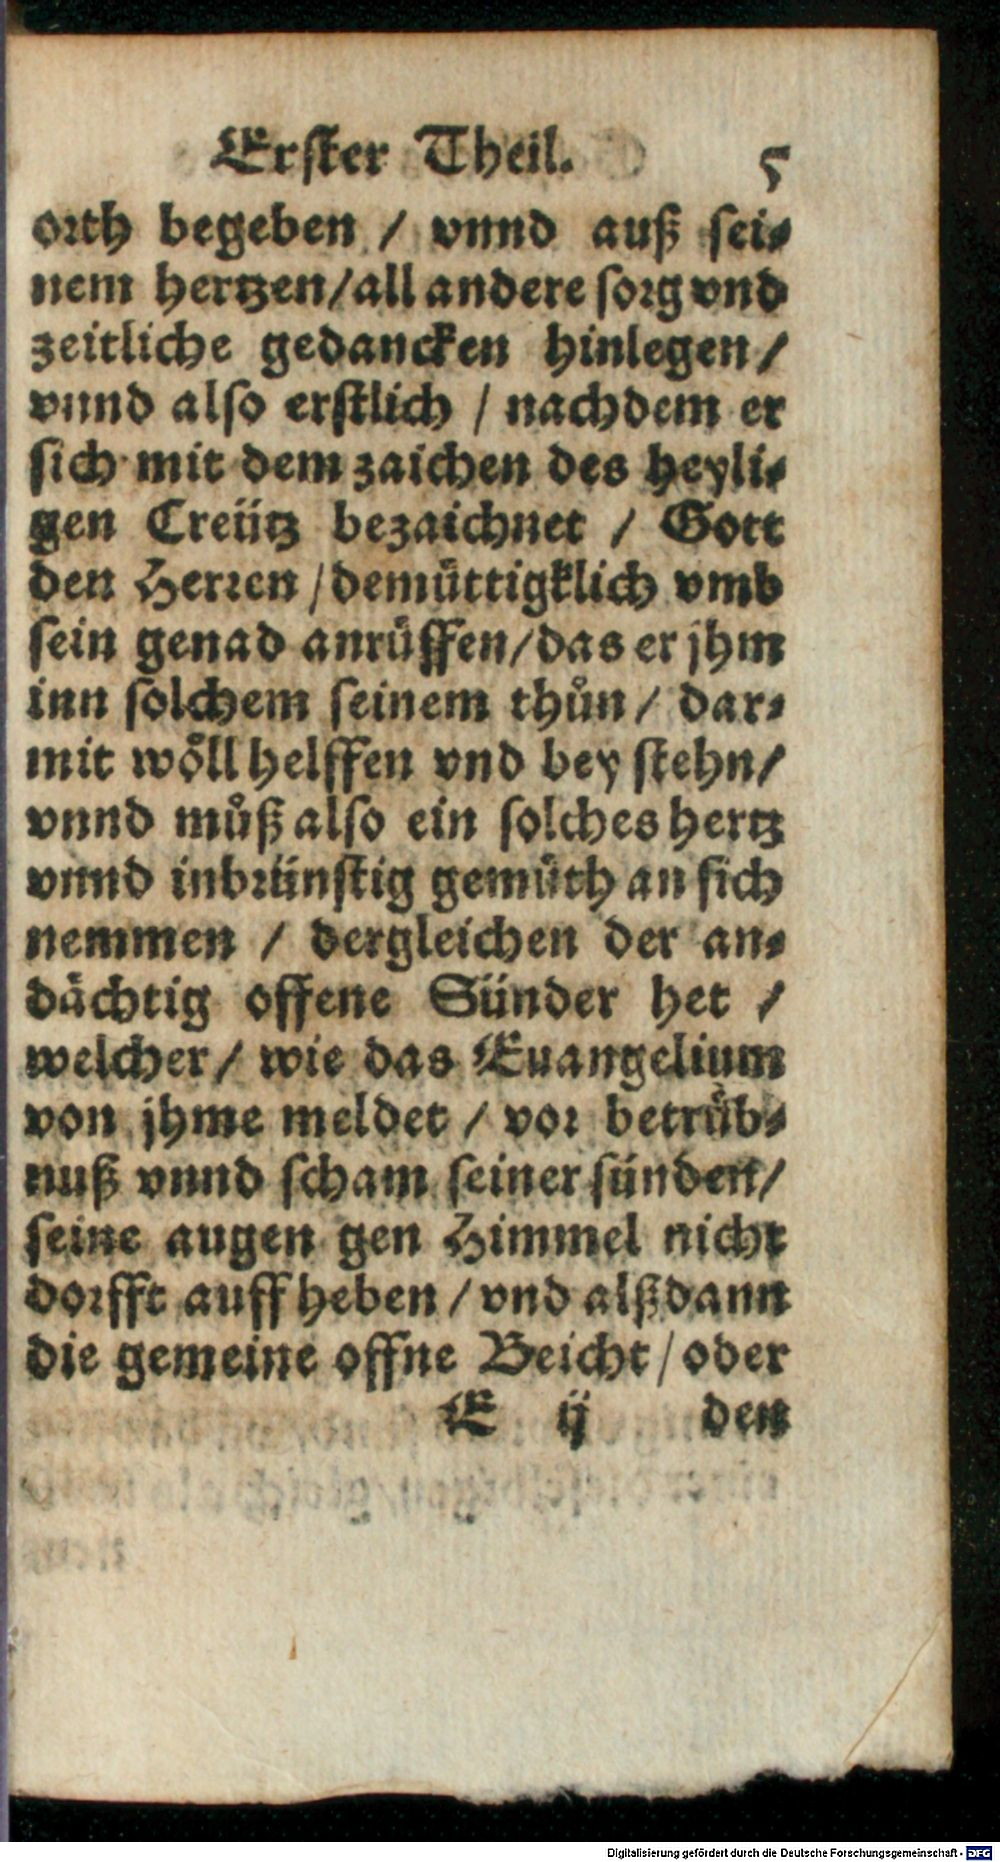 Erster Theil. 5
orth begeben / vnnd auß sei-
nem hertzen/all andere sorg vnd
zeitliche gedancken hinlegen/
vnnd also erstlich / nachdem er
sich mit dem zaichen des heyli-
gen Creütz bezaichnet / Gott
den Herren/demüttigklich vmb
sein genad anrüffen/das er jhm
inn solchem seinem thůn/ dar-
mit wöll helffen vnd bey stehn/
vnnd můß also ein solches hertz
vnnd inbrünstig gemüth an sich
nemmen / dergleichen der an-
dächtig offene Sünder het /
welcher/ wie das Euangelium
von jhme meldet / vor betrüb-
nuß vnnd scham seiner sünden/
seine augen gen Himmel nicht
dorfft auff heben / vnd alßdann
die gemeine offne Beicht/oder
E ij den
Digitalisierung gefördert durch die Deutsche Forschungsgemeinschaft - DFG